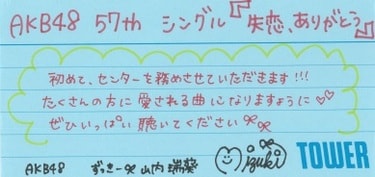 AKB48 57th シングル『失恋、ありがとう』
初めて、センターを務めさせていただきます!!!
たくさんの方に愛される曲になりますように♡♡
ぜひいっぱい聴いてください
AKB48 ずっきー 山内瑞葵 Mizuki TOWER